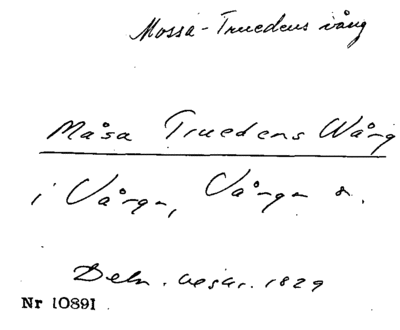 Mossa-Truedens vång
Måsa Truedens Wång
i Vånga, Vånga s.
Beln. besk. 1829
Nr 10891